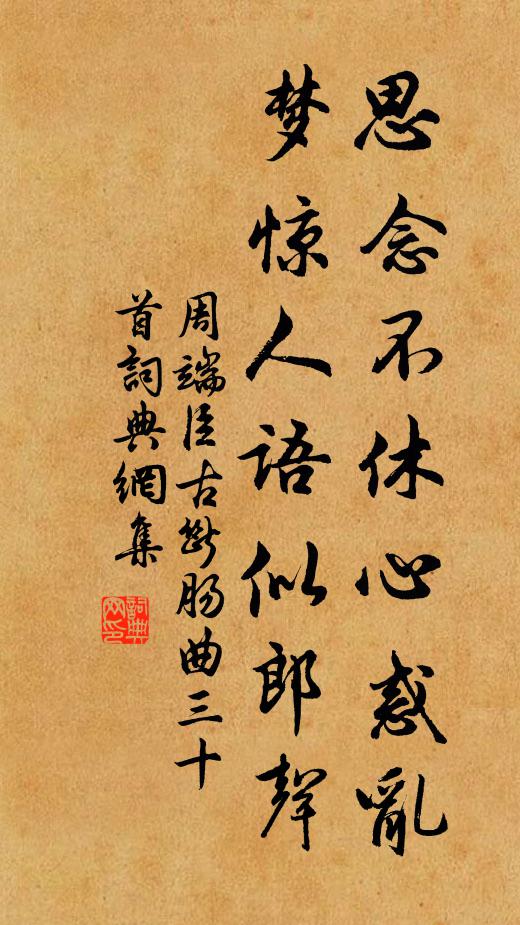 思念不休心惑亂
梦惊人语似郎聲
周端臣古断肠曲三十
首詞典網集
詞典
网印